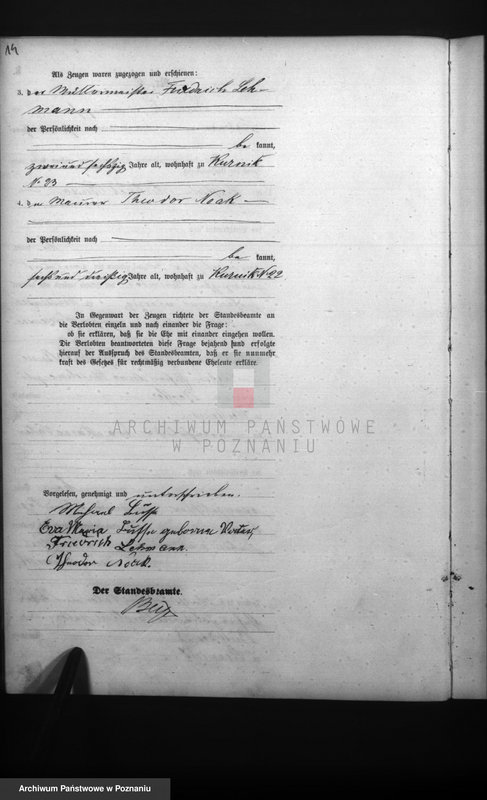 14
Als Zeugen waren zugezogen und erschienen:
3. der Müllermeister Friedrich Leh-
mann
der Persönlichkeit nach
be kannt,
zweiundsechzig Jahre alt, wohnhaft zu Kurnik
No 23
4. der Maurer Theodor Noak
der Persönlichkeit nach
be kannt,
sechsunddreißig Jahre alt, wohnhaft zu Kurnik No 22
In Gegenwart der Zeugen richtete der Standesbeamte an
die Verlobten einzeln und nach einander die Frage:
ob sie erklären, daß sie die Ehe mit einander eingehen wollen.
Die Verlobten beantworteten diese Frage bejahend und erfolgte
hierauf der Ausspruch des Standesbeamten, daß er sie nunmehr
kraft des Gesetzes für rechtmäßig verbundene Eheleute erkläre.
ARCHIWUM PAŃSTWOWE
W POZNANIU
Vorgelesen, genehmigt und unterschrieben.
Michael
Eva Maria geborene
Friedrich Lehmann.
Theodor Noak.
Der Standesbeamte.
Archiwum Państwowe w Poznaniu